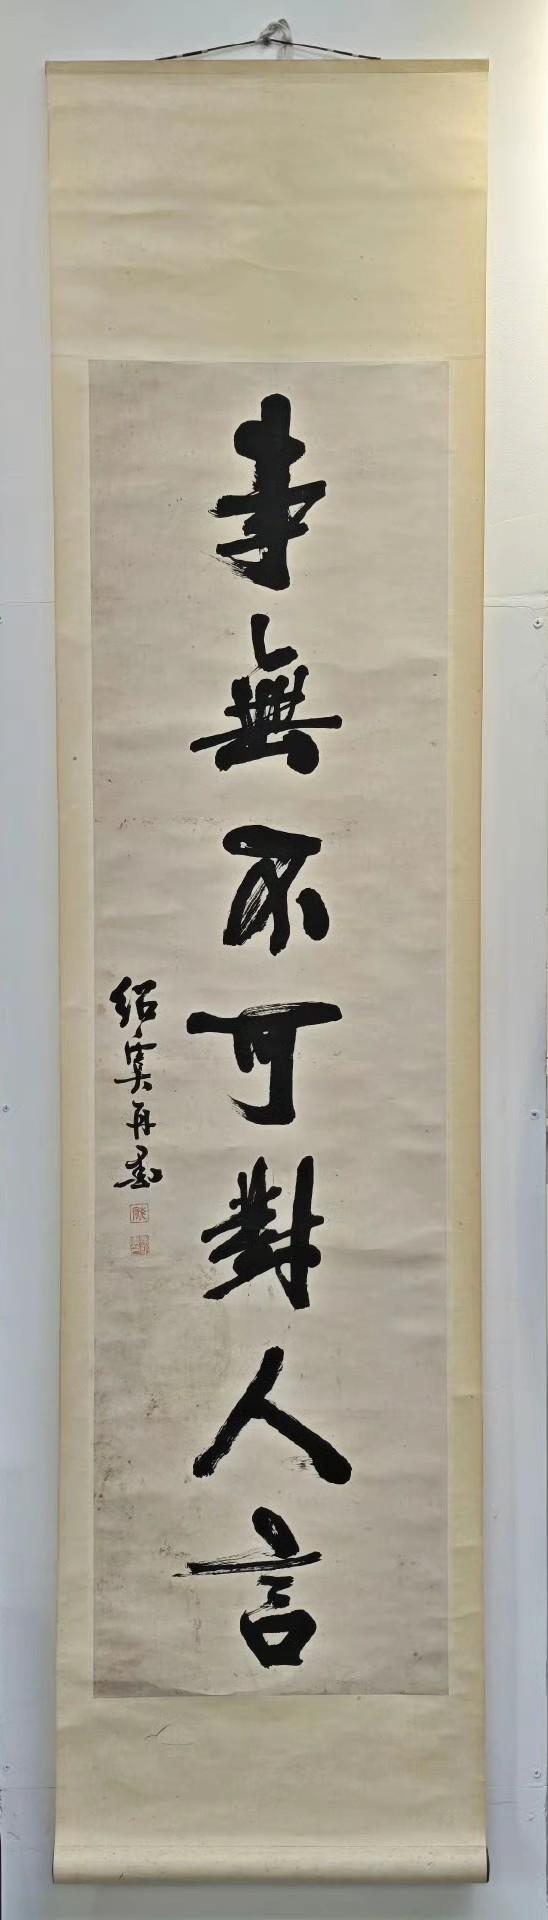 事無不可對人言
紹虞再